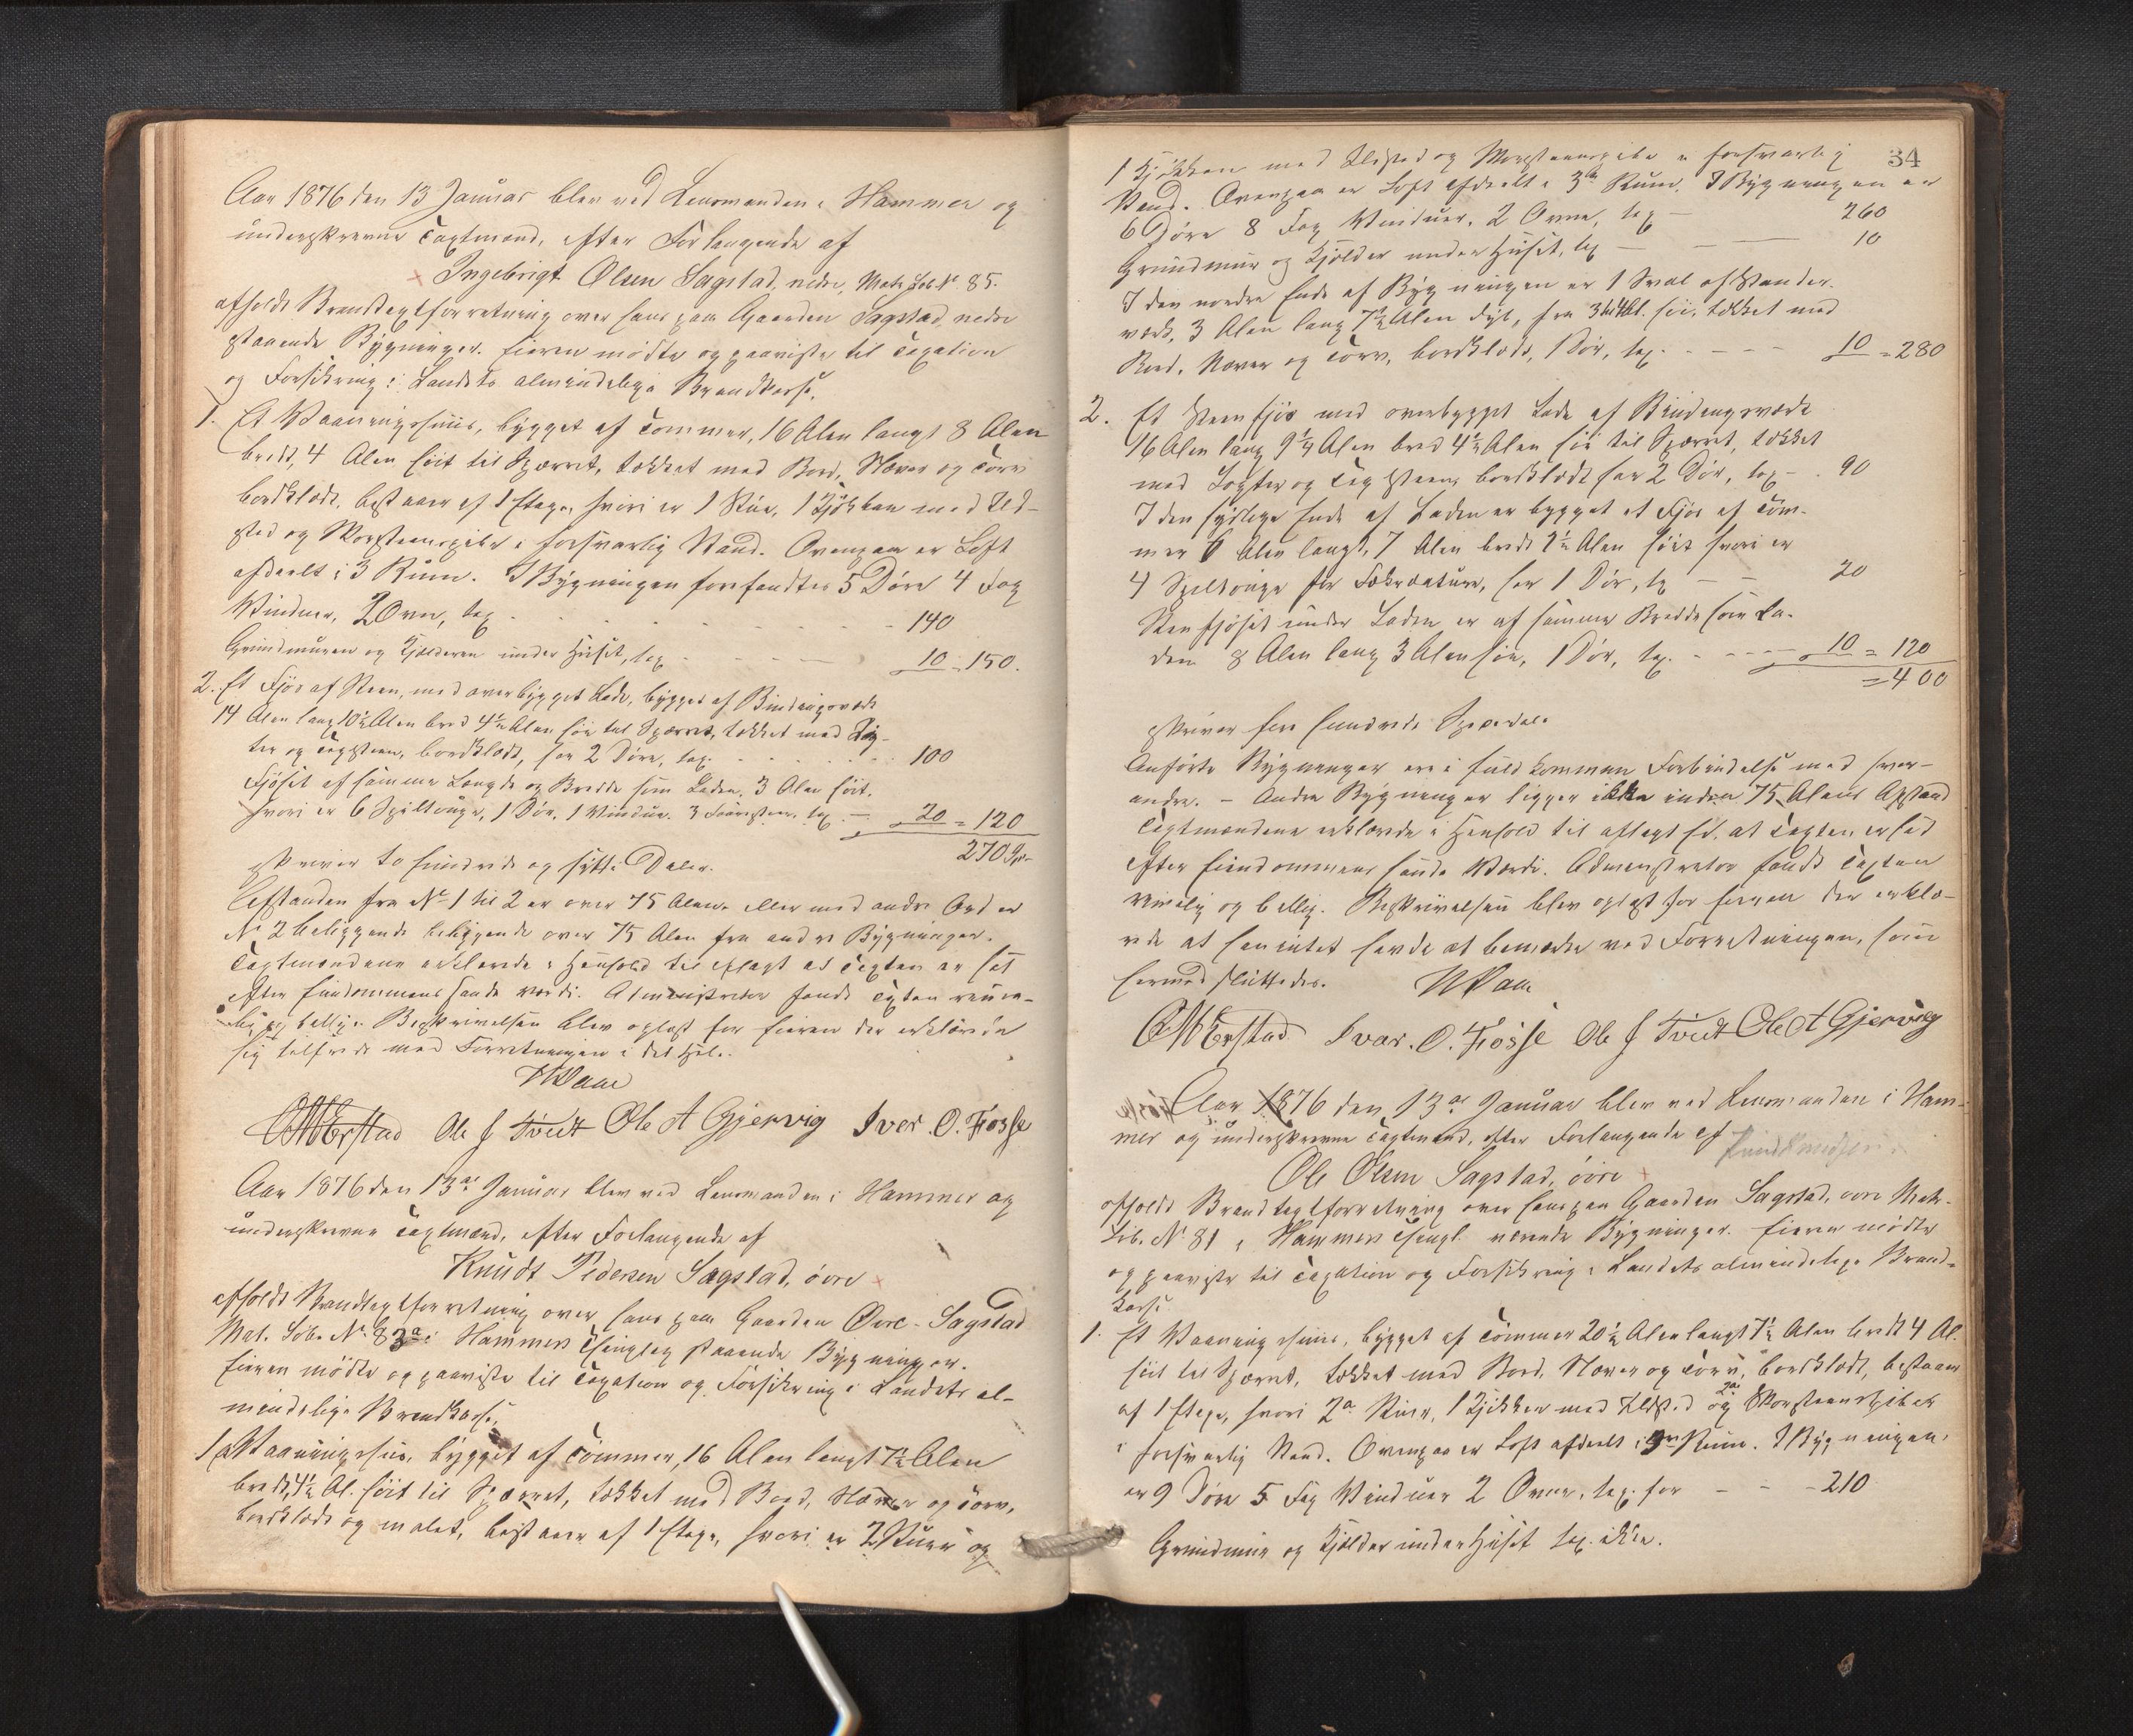 Aar 1876 den 13 Januar blev ved Lensmanden i Hammer og
underskrevne Taxtmænd, efter Forlangende af
Ingebrigt Olsen Sagstad, nedre, Matr. Lob. N° 85.
afholdt Brandtaxtforretning over hans paa Gaarden Sagstad nedre
staaende Bygninger. Eieren mødte og paaviste til Taxation
og Forsikring i Landets almindelige Brandkasse.
1. Et Vaaningshuus, bygget af Tømmer, 16 Alen langt 8 Alen
bredt, 4 Alen høit til Spærret, tækket med Bord, Næver og Torv
bordklædt, bestaaer af 1 Etage, hvori er 1 Stue, 1 Kjøkken med Ild-
sted og Skorsteenspibe i forsvarlig Stand. Ovenpaa er Loft
afdeelt i 3 Rum. I Bygningen forefandtes 5 Døre 4 Fag
Vinduer, 2 Ovne, tax. 140
Grundmuren og Kjælderen under Huset, tax 10 = 150.
2. Et Fjøs af Steen, med overbygget Lade, bygget af Bindingsværk
14 Alen lang 10½ Alen bred 4½ Alen høi til Spærret, tækket med Læg-
ter og Tagsteen, bordklædt, har 2 Døre, tax. 100
Fjøset af samme Længde og Bredde som Laden, 3 Alen høit,
hvori er 6 Spiltouge, 1 Dør, 1 Vindue, tax. 20 = 120
270 Sp.
skriver to hundrede og sytti Daler.
Afstanden fra N° 1 til 2 er over 75 Alen, eller med andre Ord er
N° 2 beliggende beliggende over 75 Alen fra andre Bygninger.
Taxtmændene erklærede i Henhold til aflagt Ed at Taxten er sat
efter Eiendommens sande Værdi. Administrator fandt Taxten rime-
lig og billig. Beskrivelsen blev oplæst for Eieren der erklærede
sig tilfreds med Forretningen i det Hele.
Ole J Tvedt Ole A Gjervig Iver. O. Fosse
Aar 1876 den 13de Januar blev ved Lensmanden i Hammer og
underskrevne Taxtmænd, efter Forlangende af
Knudt Pedersen Sagstad, øvre
afholdt Brandtaxtforretning over hans paa Gaarden Øvre-Sagstad
Mat. Løb. N° 83a i Hammers Thinglag staaende Bygninger.
Eieren mødte og paaviste til Taxation og Forsikring i Landets al-
mindelige Brandkasse,
1. Et Vaaningshus, bygget af Tømmer, 16 Alen langt 7½ Alen
bredt, 4½ Al. høit til Spærret, tækket med Bord, Næver og Torv,
bordklædt og malet, bestaaer af 1 Etage, hvori er 2 Stuer og
34
1 Kjøkken med Ildsted og Skorsteenspibe i forsvarlig
Stand. Ovenpaa er Loft afdeelt i 3de Rum. I Bygningen er
6 Døre 8 Fag Vinduer, 2 Ovne, tax 260
Grundmur og Kjelder under Huset, tax 10
I den nordre Ende af Bygningen er 1 Sval af Stander-
værk, 3 Alen lang 7½ Alen dyb, høi, tækket med
Bord, Næver og Torv, bordklædt, 1 Dør, tax. 10 = 280
2. Et Steenfjøs med overbygget Lade af Bindingsværk
16 Alen lang 9¼ Alen bred 4½ Alen høi til Spærret, tækket
med Lægter og Tagsteen, bordklædt har 2 Dør, tax 90
I den sydlige Ende af Laden er bygget et Fjøs af Tøm-
mer 6 Alen langt, 7 Alen bredt Alen høit hvori er
4 Spiltouge for Fækreature, har 1 Dør, tax 20
Steenfjøset under Laden er af samme Bredde som La-
den 8 Alen lang 3 Alen høi, 1 Dør, tax. 10 = 120
= 400
skriver fire hundrede Speciedaler
Anførte Bygninger ere i fuldkommen Forbindelse med hver-
andre. – Andre Bygninger ligger ikke inden 75 Alens Afstand
Taxtmændene erklærede i Henhold til aflagt Ed, at Taxten er sat
efter Eiendommens sande Værdi. Administrator fandt Taxten
rimelig og billig. Beskrivelsen blev oplæst for Eieren der erklæ-
rede at han intet havde at bemærke ved Forretningen, som
hermed sluttedes.
Ivar. O. Fosse Ole J Tvedt Ole A Gjervig
Aar 1876 den 13de Januar blev ved Lensmanden i Ham-
mer og underskrevne Taxtmænd, efter Forlangende af
Ole Olsen Sagstad, øvre
afholdt Brandtaxtforretning over hans paa Gaarden Sagstad, øvre Matr.
Løb. N° 81 i Hammers Thingl. værende Bygninger. Eieren mødte
og paaviste til Taxation og Forsikring i Landets almindelige Brand-
kasse
1. Et Vaaningshuus, bygget af Tømmer 20½ Alen langt 7½ Alen bredt 4 Al.
høit til Spærret, tækket med Bord, Næver og Torv, bordklædt, bestaaer
af 1 Etage, hvori 2de Stuer, 1 Kjøkken med Ildsted og 2de Skorsteenspiber
i forsvarlig Stand. Ovenpaa er Loft afdeelt i Rum. I Bygningen
er 9 Døre 5 Fag Vinduer 2 Ovne, tax. for 210
Grundmur og Kjelder under Huset tax. ikke.